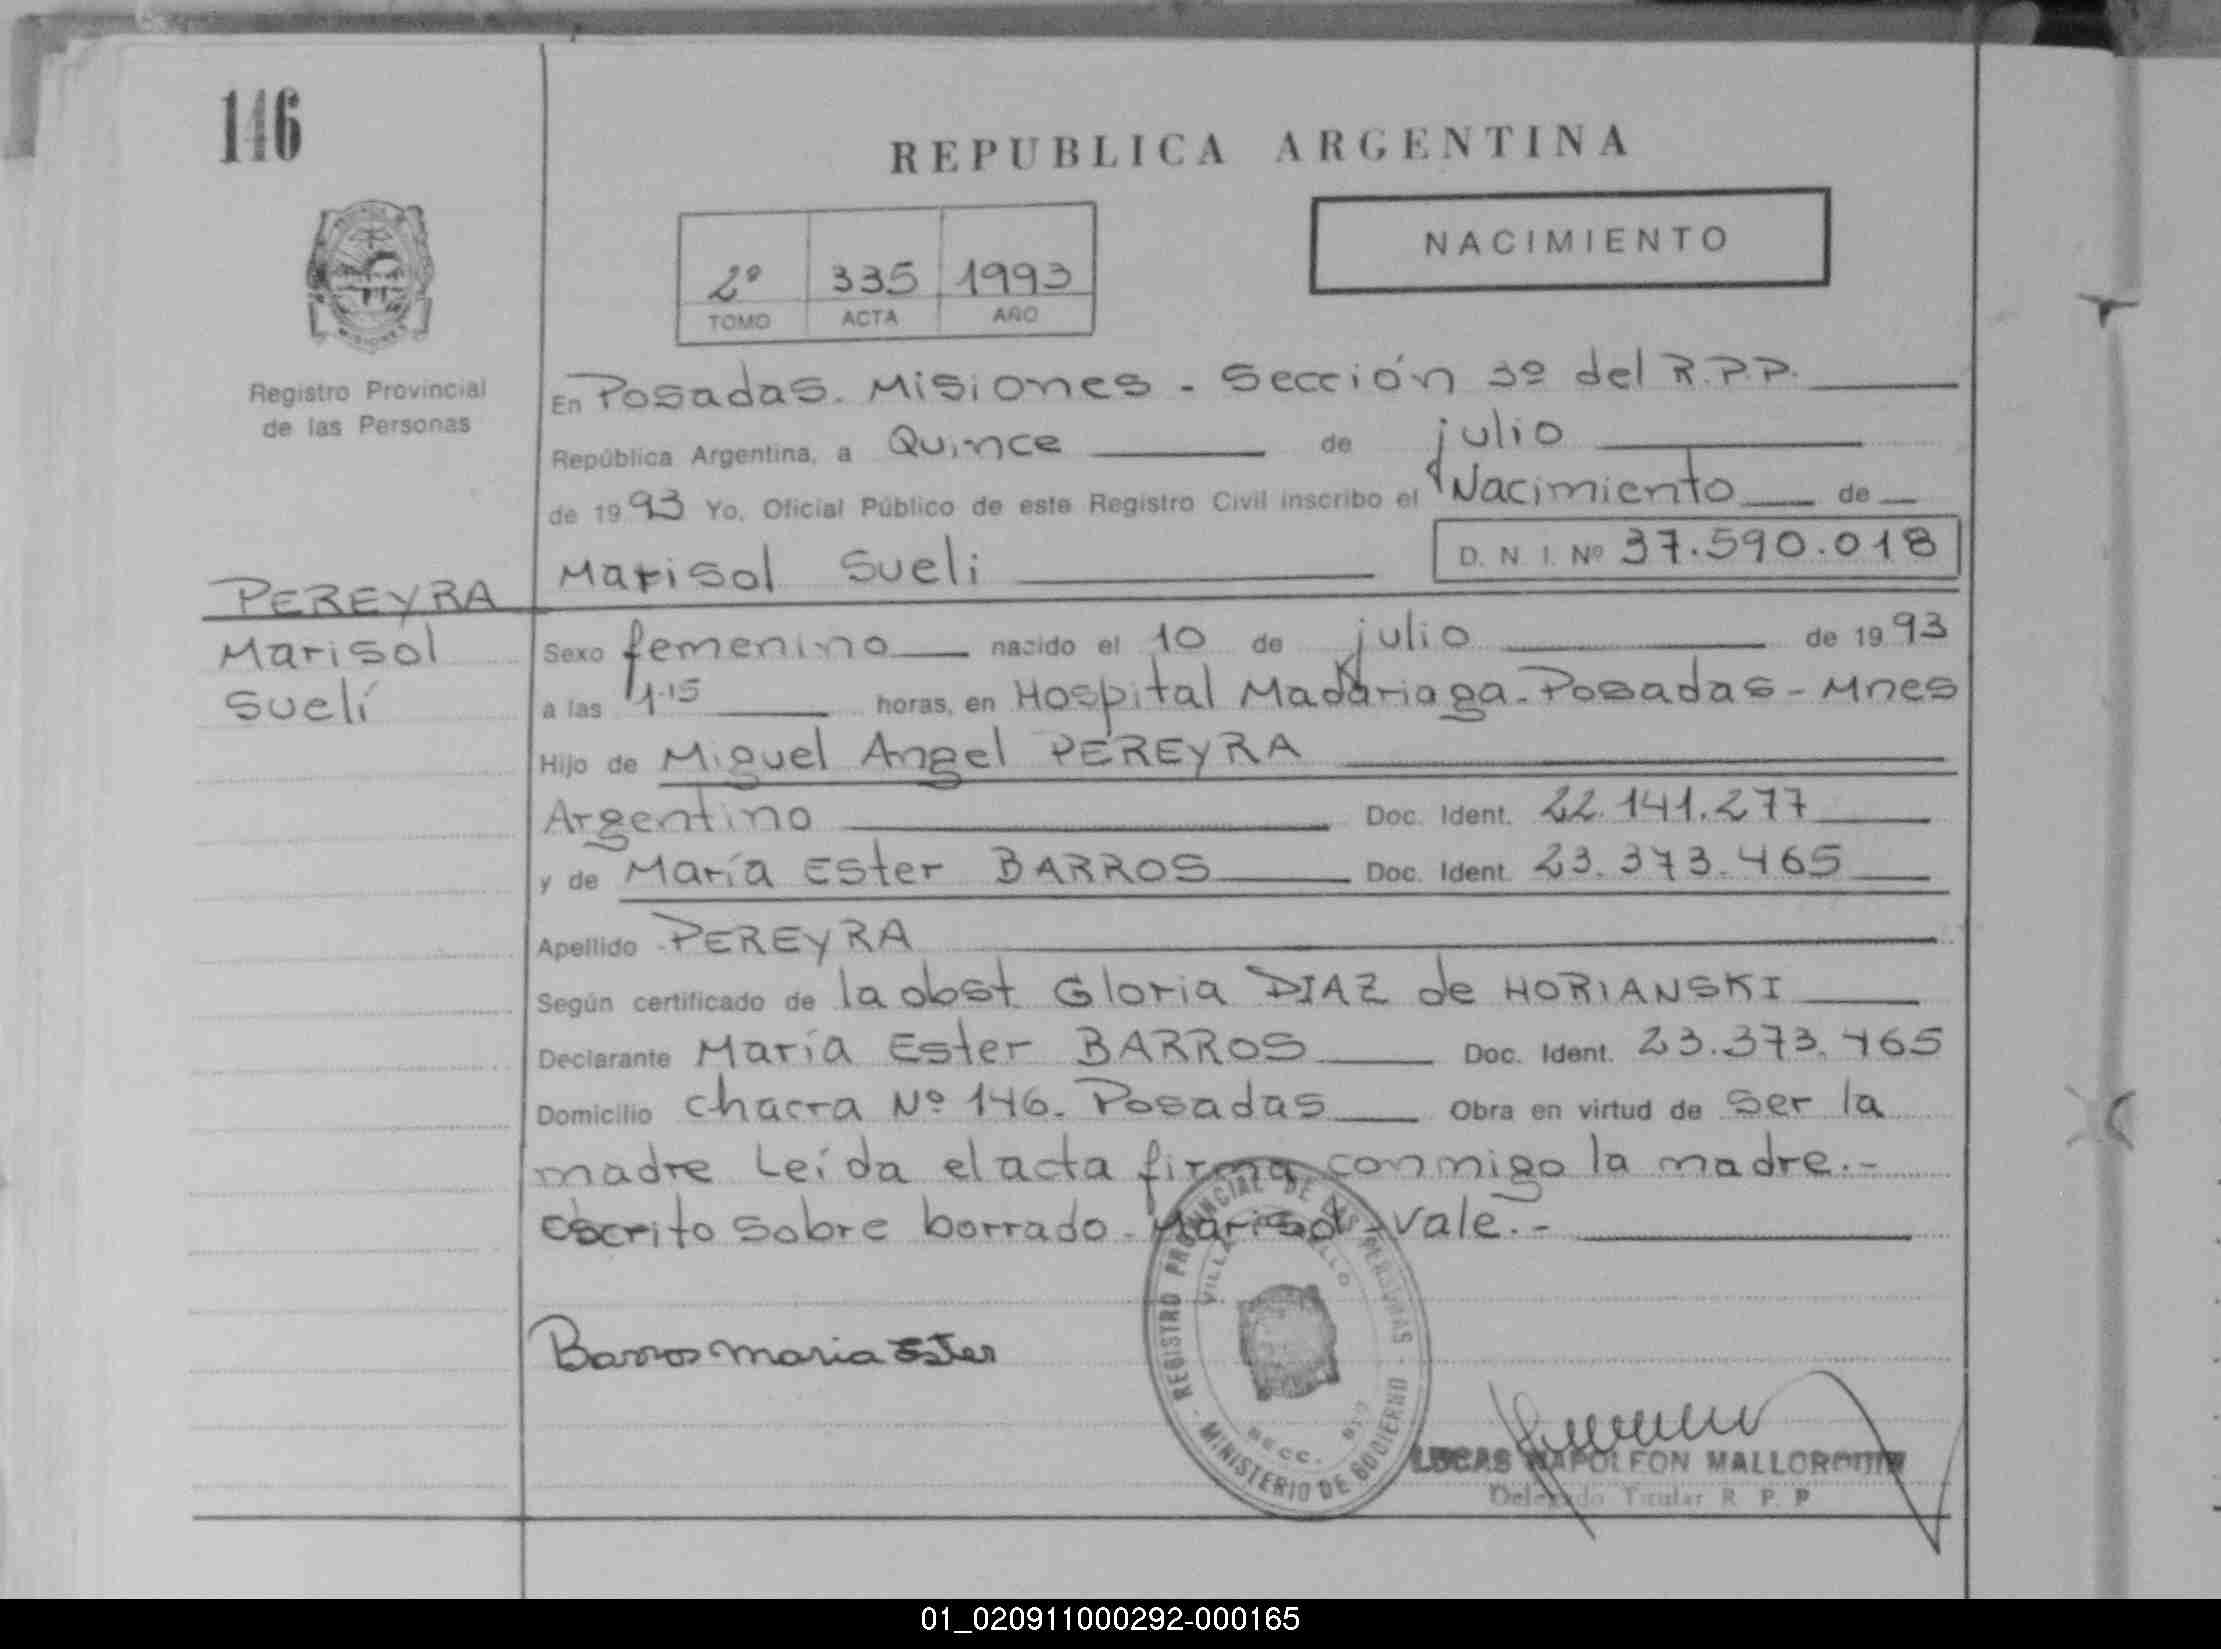 146
REPUBLICA ARGENTINA
NACIMIENTO
2º 335 1993
TOMO ACTA AÑO
Registro Provincial
de las Personas
En Posadas. Misiones - Sección 3º del R.P.P.
República Argentina, a Quince de julio
de 1993 Yo, Oficial Público de este Registro Civil inscribo el Nacimiento de
Marisol Sueli D. N. I. Nº 37.590.018
PEREYRA
Marisol
Suelí
Sexo femenino nacido el 10 de julio de 1993
a las 1.15 horas, en Hospital Madariaga - Posadas - Mnes
Hijo de Miguel Angel PEREYRA
Argentino Doc. Ident. 22.141.277
y de María Ester BARROS Doc. Ident. 23.373.465
Apellido PEREYRA
Según certificado de la obst. Gloria DIAZ de HORIANSKI
Declarante María Ester BARROS Doc. Ident. 23.373.465
Domicilio chacra Nº 146. Posadas Obra en virtud de ser la
madre Leída el acta firma conmigo la madre.-
escrito sobre borrado - Marisol - vale.-
Barros maria Ester
REGISTRO PROVINCIAL DE LAS PERSONAS
MINISTERIO DE GOBIERNO
VILLA
SECC.
LUCAS NAPOLEON
Delegado Titular R. P. P
MISIONES
01_020911000292-000165